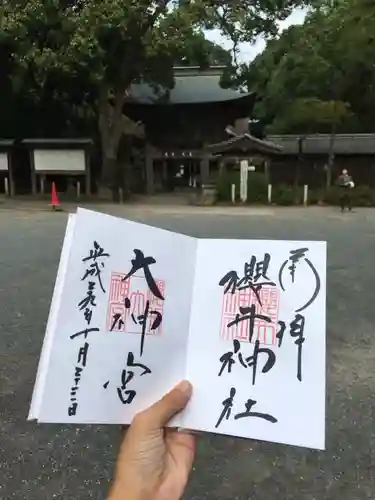 奉拝
櫻井神社
大神宮
平成二九年十月二十二日